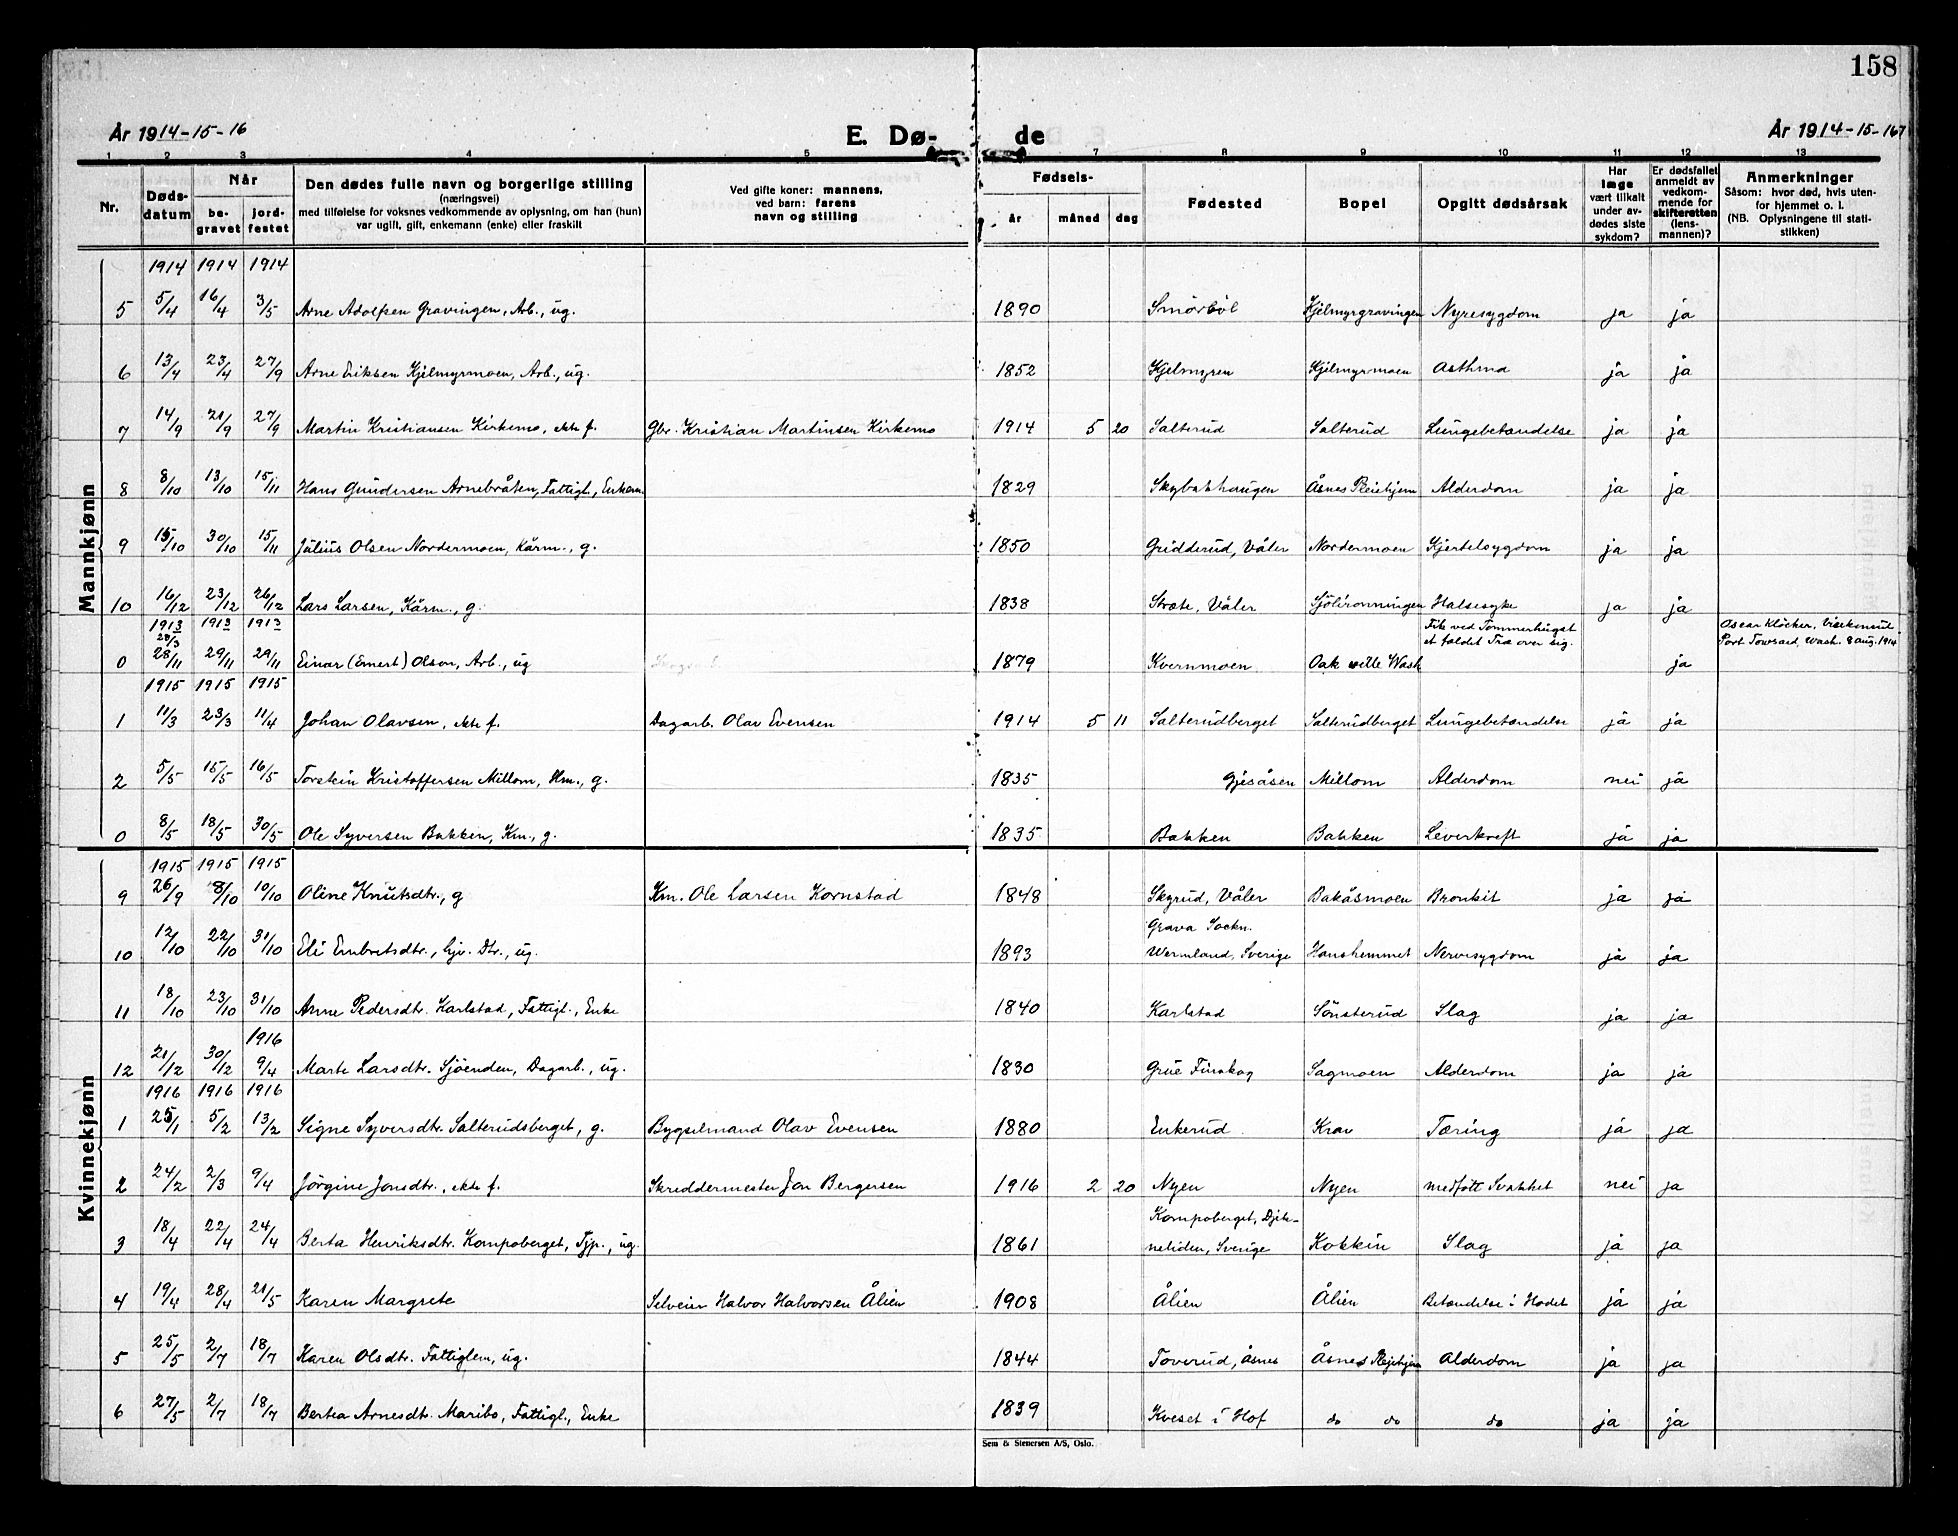 158
År 1914-15-16
E. Dø- de
År 1914-15-167
1 2 3 4 5 7 8 9 10 11 12 13
Nr.
Døds-datum
Når
be-gravet
jord-festet
Den dødes fulle navn og borgerlige stilling
(næringsvei)
med tilføielse for voksnes vedkommende av oplysning, om han (hun)
var ugift, gift, enkemann (enke) eller fraskilt
Ved gifte koner: mannens,
ved barn: farens
navn og stilling
Fødsels-
år måned dag
Fødested
Bopel
Opgitt dødsårsak
Har
læge
vært tilkalt
under av-
dødes siste
sykdom?
Er dødsfallet
anmeldt av
vedkom-
mende for
skifteretten
(lens-
mannen)?
Anmerkninger
Såsom: hvor død, hvis uten-
for hjemmet o. l.
(NB. Oplysningene til stati-
stikken)
Mannkjønn
1914 1914 1914
5 5/4 16/4 3/5 Arne Adolfsen Gravingen, Arb., ug. 1890 Smörböl Kjelmyrgravingen Nyresygdom ja ja
6 13/4 23/4 27/9 Arne Eriksen Kjelmyrmoen, Arb., ug. 1852 Kjelmyren Kjelmyrmoen Asthma ja ja
7 14/9 21/9 27/9 Martin Kristiansen Kirkemo, ekte f. Gbr. Kristian Martinsen Kirkemo 1914 5 20 Salterud Salterud Lungebetændelse ja ja
8 8/10 13/10 15/11 Hans Gundersen Arnebråten, Fattigl., Enkem. 1829 Skybakhaugen Åsnes Pleiehjem Alderdom ja ja
9 15/10 30/10 15/11 Julius Olsen Nordermoen, Kårm., g. 1850 Gridderud, Våler Nordermoen Kjertelsygdom ja ja
10 16/12 23/12 26/12 Lars Larsen, Kårm., g. 1838 Stræte, Våler Sjölironningen Halsesyke ja ja
1913 1913 1913
28/3
Fik ved Tømmerhugst
et faldet Træ over sig.
Oscar Klöcker, Visekonsul
Port Townsend, Wash. 8 aug. 1914
0 28/11 29/11 29/11 Einar (Emert) Olson, Arb., ug 1879 Kvernmoen Oak wille Wash ja
1915 1915 1915
1 11/3 23/3 11/4 Johan Olavsen, ekte f. Dagarb. Olav Evensen 1914 5 11 Salterudberget Salterudberget Lungebetændelse ja ja
2 5/5 15/5 16/5 Torstein Kristoffersen Millom, Hm., g. 1835 Gjesåsen Millom Alderdom nei ja
0 8/5 18/5 30/5 Ole Syversen Bakken, Km., g. 1835 Bakken Bakken Leverkreft ja ja
Kvinnekjønn
1915 1915 1915
9 26/9 8/10 10/10 Oline Knutsdtr., g Km. Ole Larsen Kornstad 1848 Skyrud, Våler Bakåsmoen Bronkit ja ja
Grava Sockn.
10 12/10 22/10 31/10 Eli Embretsdtr., Gjv. Dtr., ug. 1893 Wermland, Sverige Hanshemmet Nervesygdom ja ja
11 18/10 23/10 31/10 Anne Pedersdtr. Karlstad, Fattigl., Enke 1840 Karlstad Sönsterud Slag ja ja
1916
12 21/12 30/12 9/4 Marte Larsdtr. Sjöenden, Dagarb., ug. 1830 Grue Finskog Sagmoen Alderdom ja ja
1916 1916 1916
1 25/1 5/2 13/2 Signe Syversdtr. Salterudsberget, g. Bygselmand Olav Evensen 1880 Enkerud Krav Tæring ja ja
2 24/2 2/3 9/4 Jörgine Jonsdtr., ekte f. Skreddermester Jon Bergersen 1916 2 20 Nyen Nyen medfött Svakhet nei ja
Kompoberget, Djek-
3 18/4 22/4 24/4 Berta Henriksdtr. Kompoberget, Tjp., ug. 1861 neliden, Sverige Kokkin Slag ja ja
4 19/4 28/4 21/5 Karen Margrete Selveier Halvor Halvorsen Ålien 1908 Ålien Ålien Betændelse i Hodet ja ja
5 25/5 2/7 18/7 Karen Olsdtr. Fattiglem, ug. 1844 Toverud, Åsnes Åsnes Plejehjem Alderdom ja ja
6 27/5 2/7 18/7 Bertea Arnesdtr. Maribo, Fattigl., Enke 1839 Kveset i Hof do do do ja ja
Sem & Stenersen A/S, Oslo.